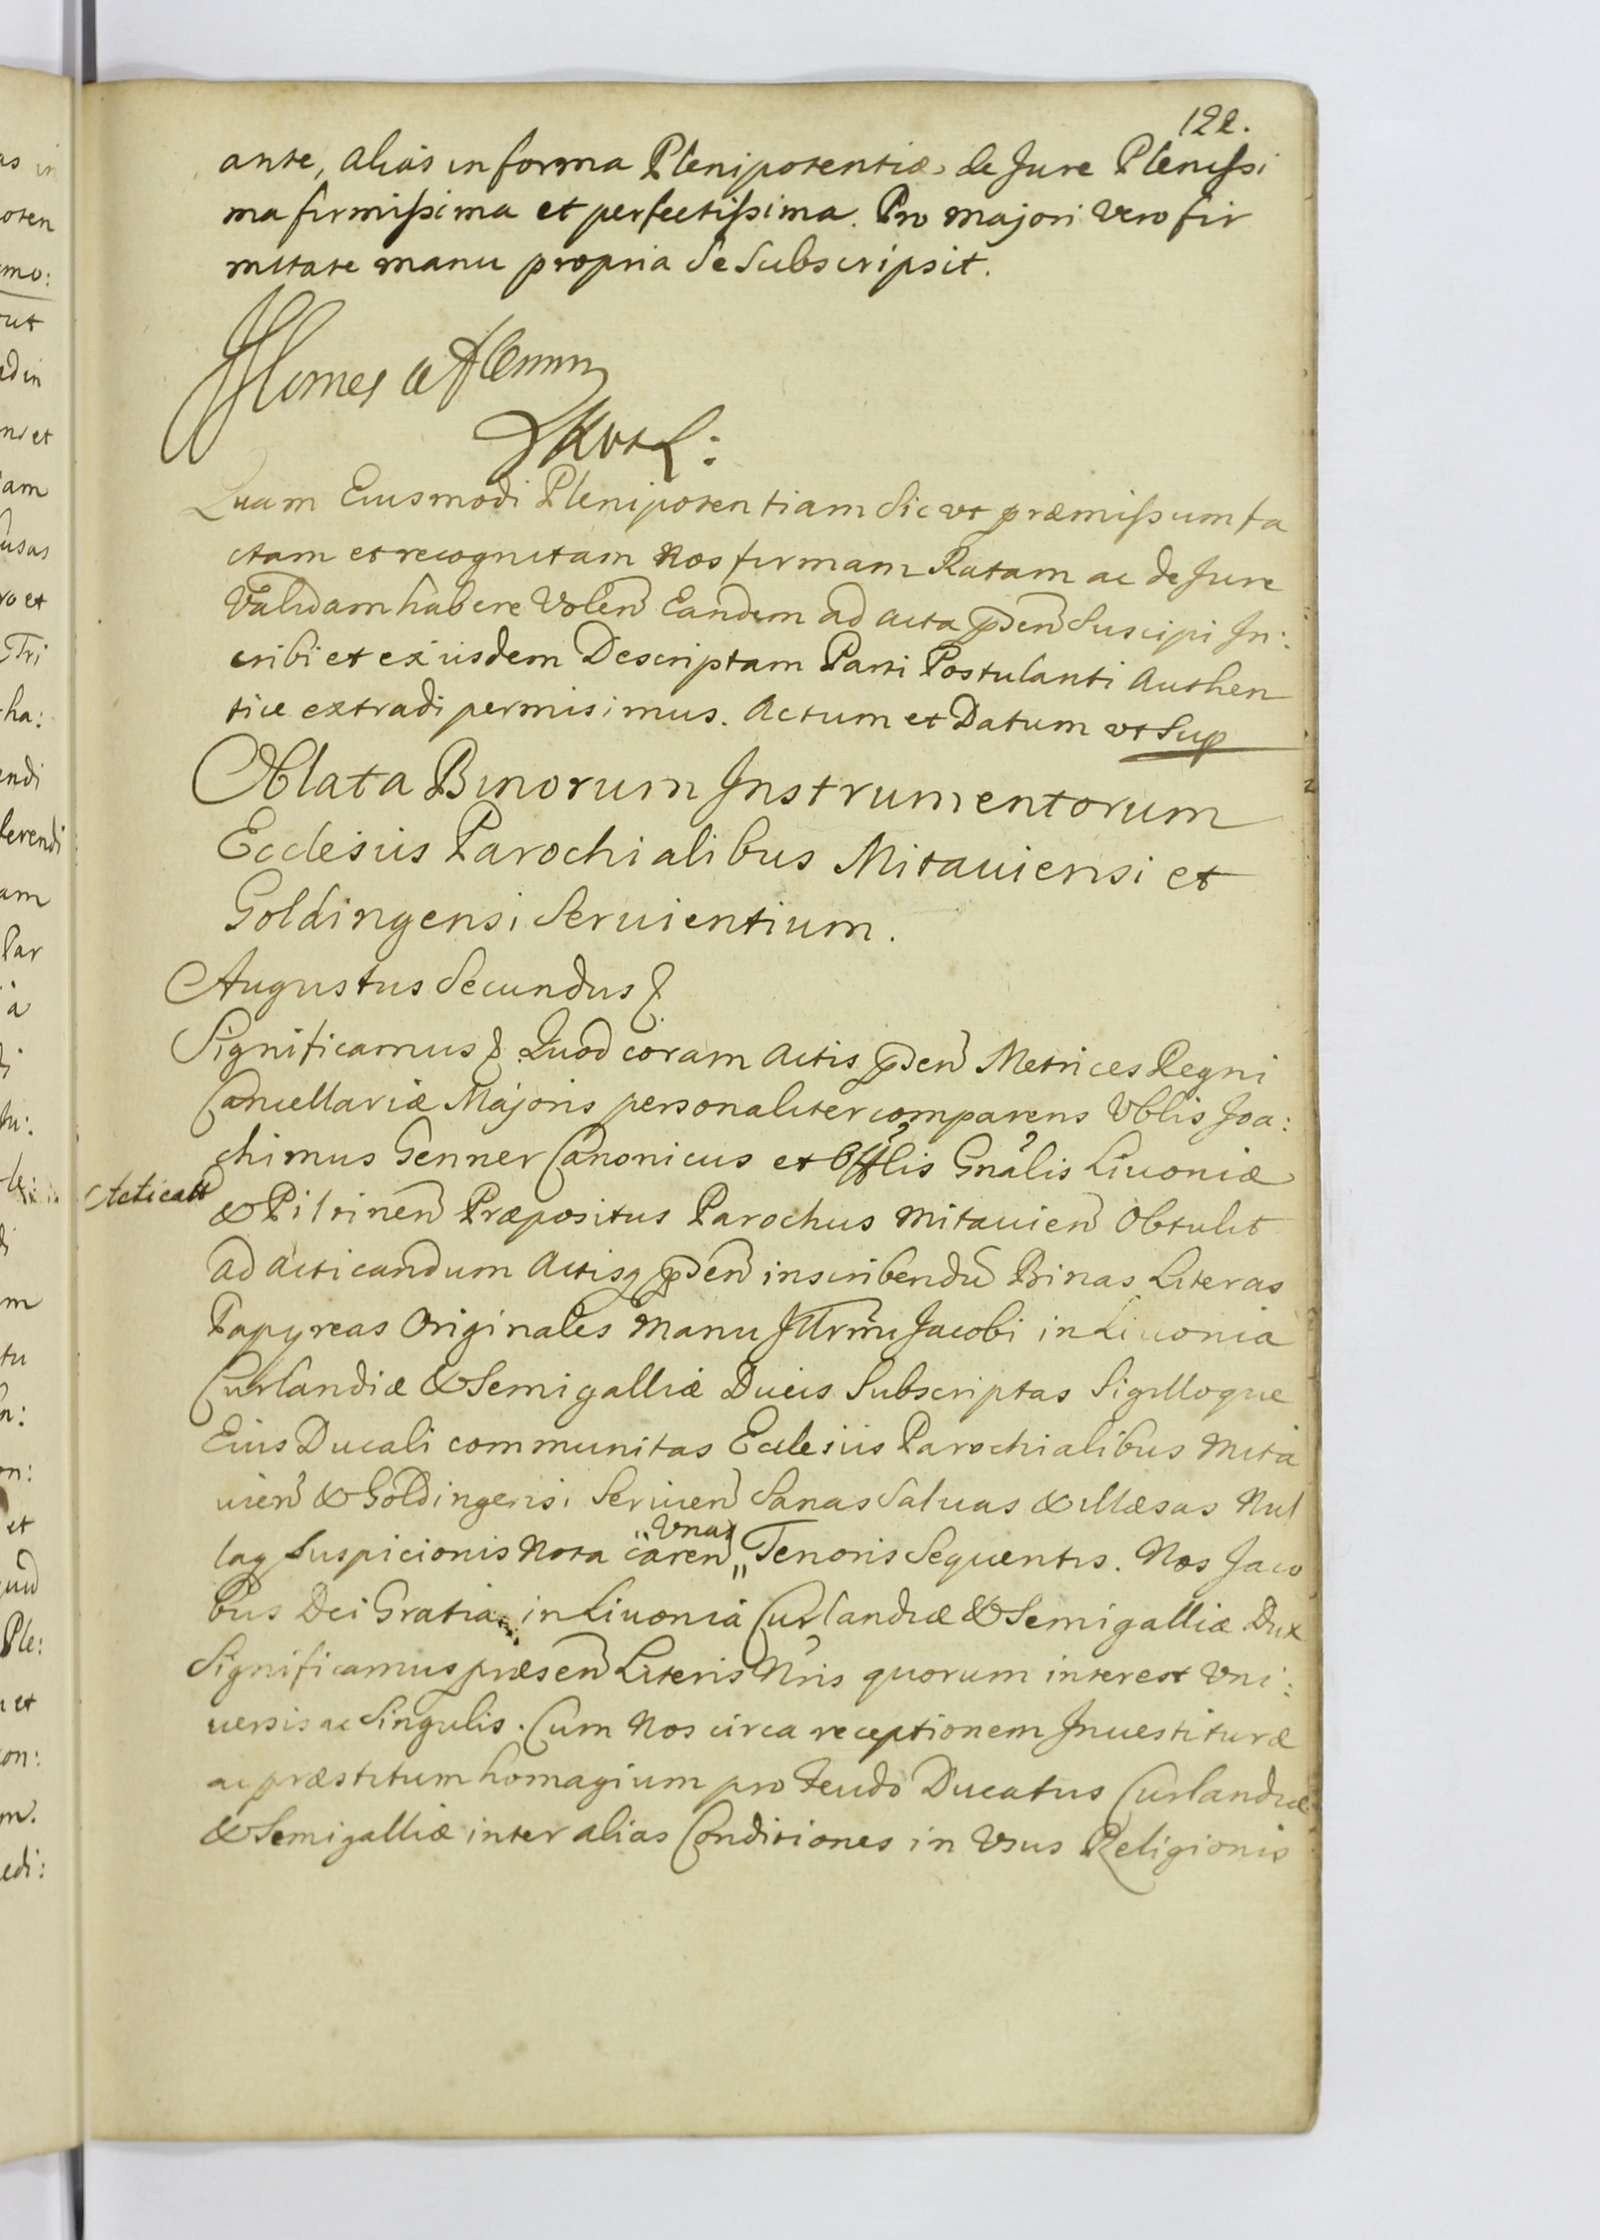 122.
ante, alias in forma Plenipotentiæ, de Jure Plenissi
ma firmissima et perfectissima. Pro majori Vero fir
mitate manu propria se Subscripsit.
Quam Eiusmodi Plenipotentiam Sic vt præmissum fa
ctam et recognitam Nos firmam Ratam ac de Jure
Validam habere Volen Eandem ad acta pden Suscipi In:
cribi et ex iisdem Descriptam Parti Postulanti Authen
tice extradi permisimus. Actum et Datum vt Sup
Oblata Binorum Instrumentorum
Ecclesiis Parochialibus Mitauiensi et
Goldingensi Seruientium.
Augustus Secundus &
Significamus & Quod coram Actis pden Metrices Regni
Cancellariæ Majoris personaliter comparens Vblis Joa:
chimus Genner Canonicus et Offlis Gnalis Liuoniæ
& Piltinen Præpositus Parochus Mitauien Obtulit
ad acticandum Actisq pden inscribendu Binas Literas
Papyreas Originales Manu Illrmi Jacobi in Liuonia
Curlandiæ & Semigalliæ Ducis Subscriptas Sigilloque
Eius Ducali communitas Ecclesiis Parochialibus Mita
uien & Goldingensi Seruien Sanas Saluas & illæsas Nul
laq Suspicionis Nota caren „ Tenoris Sequentis. Nos Jaco
Vnas
bus Dei Gratia in Liuonia Curlandiæ & Semigalliæ Dux
Significamus præsen Literis Nris quorum interest Vni:
uersis ac Singulis. Cum Nos circa receptionem Inuestituræ
ac præstitum homagium pro feudo Ducatus Curlandiæ
& Semigalliæ inter alias Conditiones in Vsus Religionis